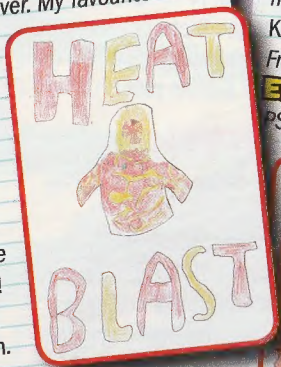 ver. My favourite
HEAT
BLAST
e
!
n.
K
Fr
E
PS